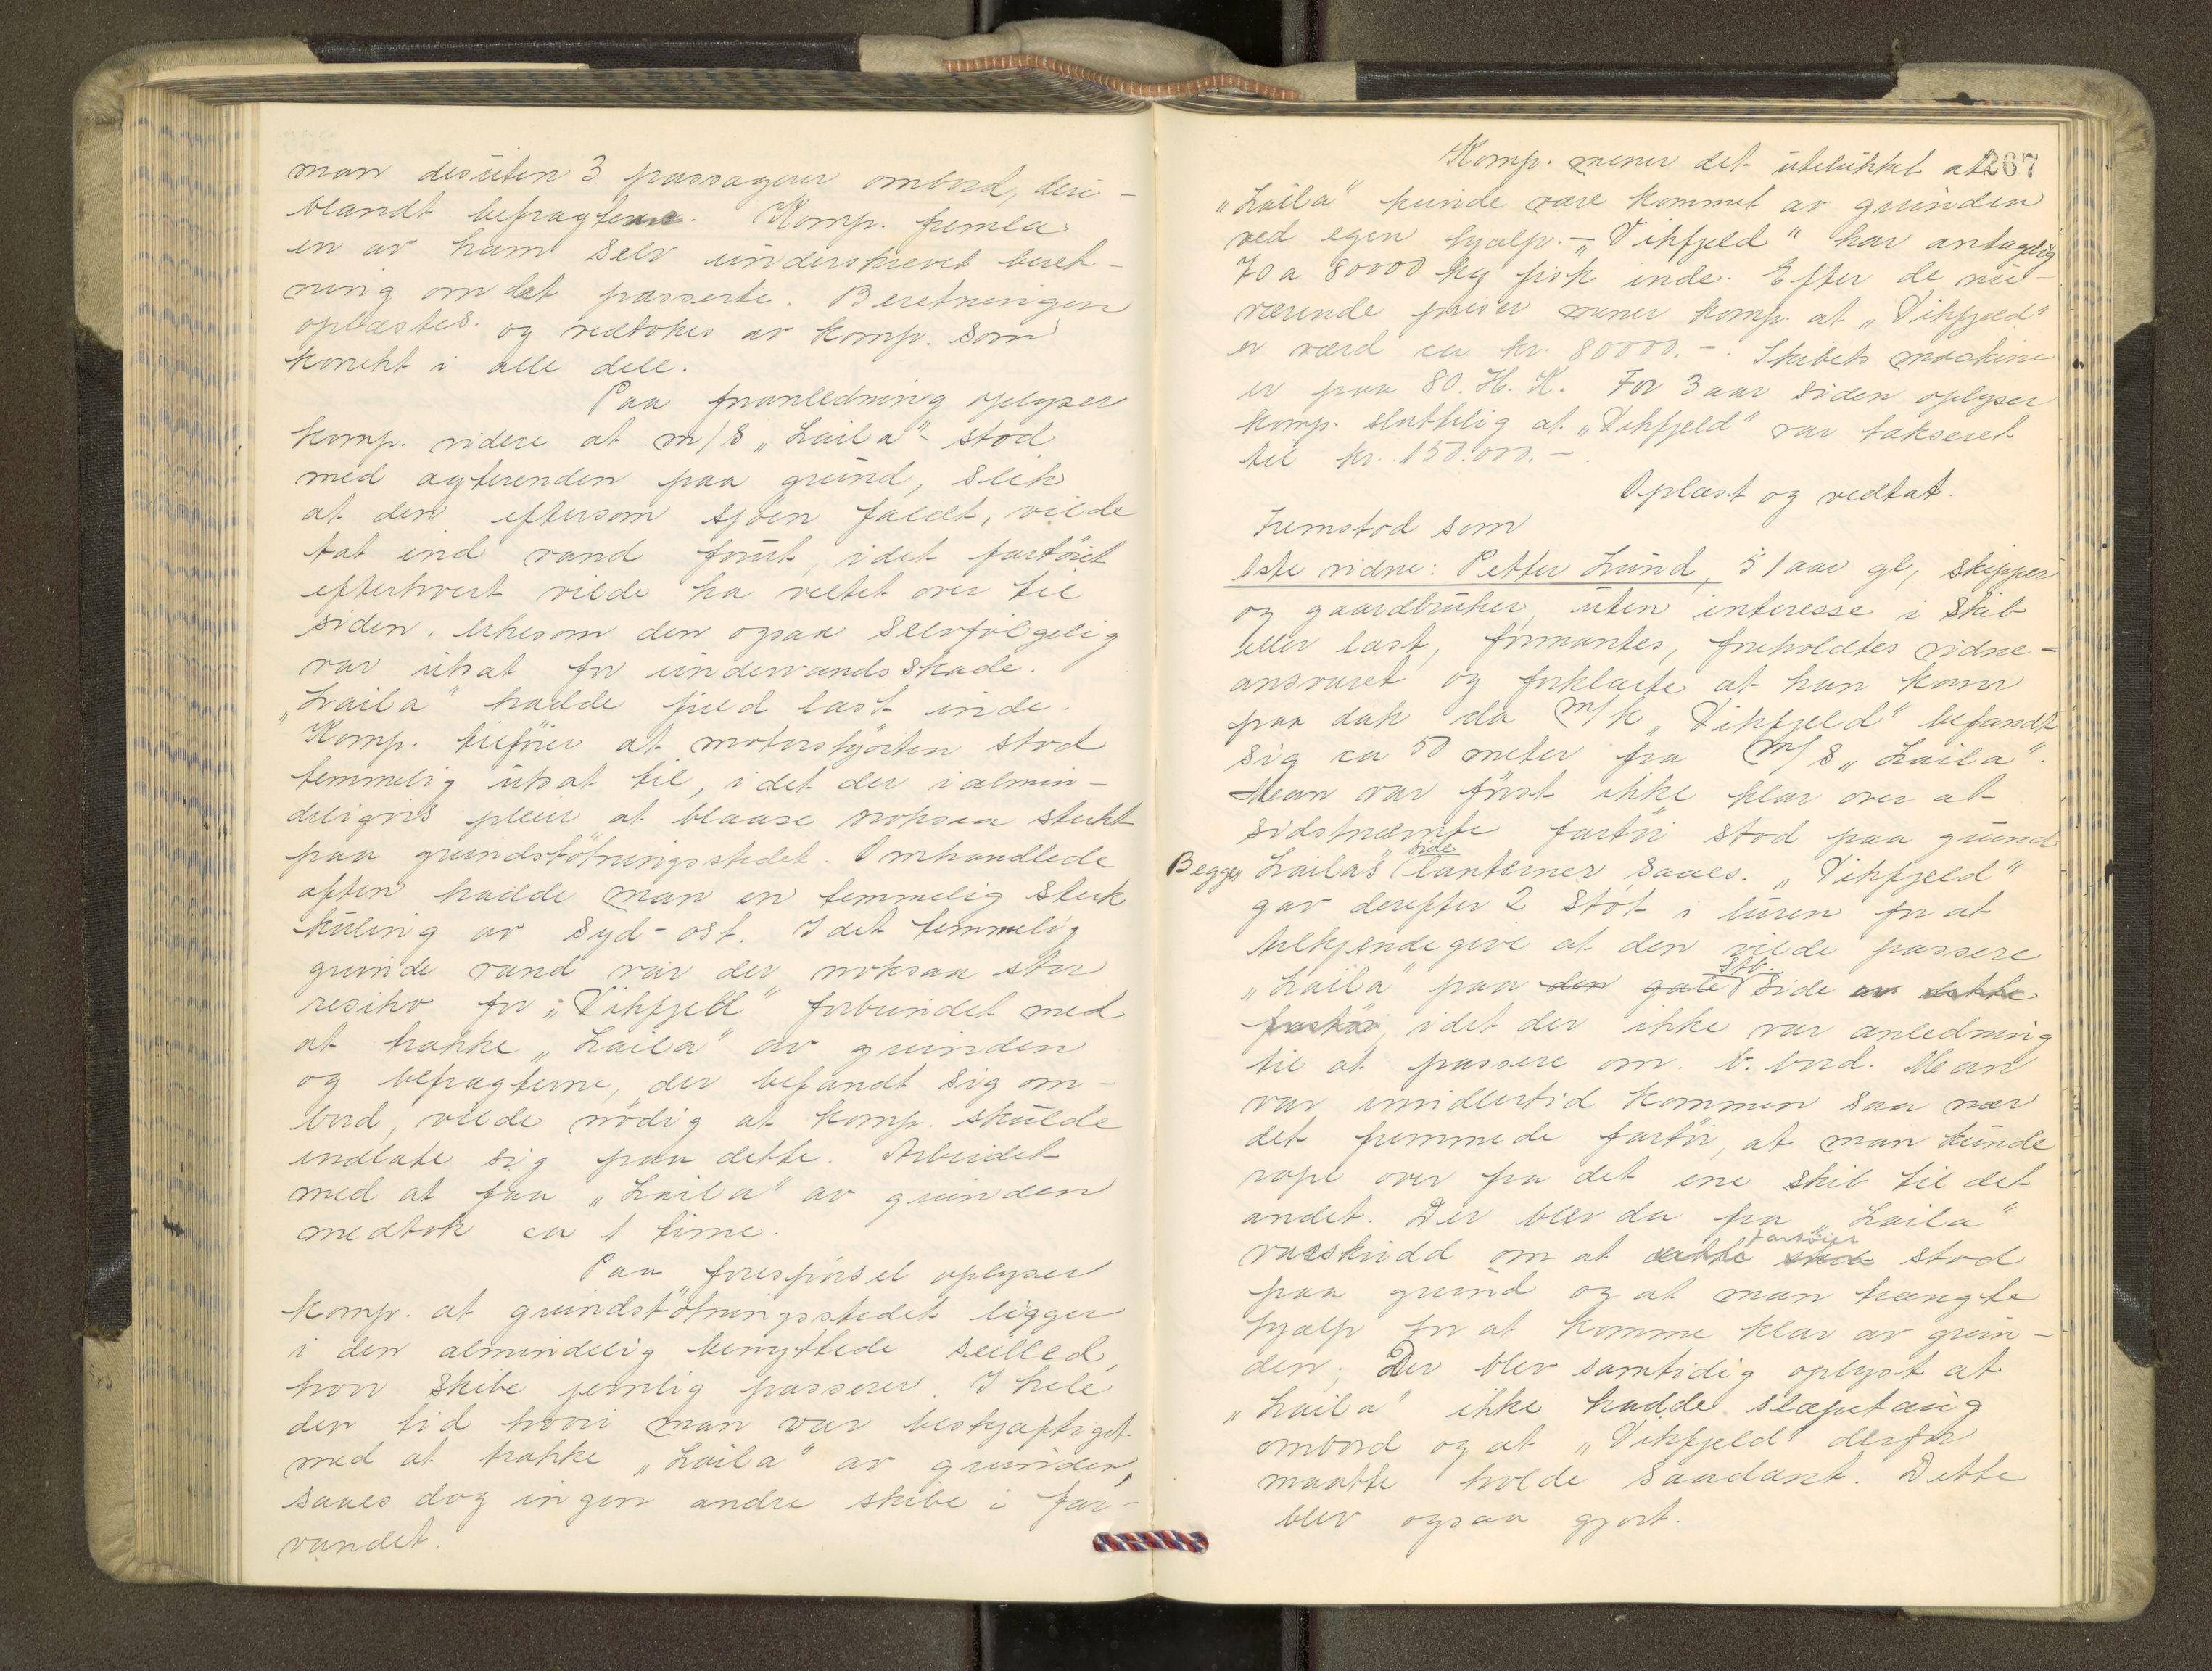 man desuten 3 passagerer ombord, deri-
blandt befragterne. Komp. fremla
en av ham selv underskrevet beret-
ning om det passerte. Beretningen
oplæstes og vedtokes av komp. som
korrekt i alle dele.
Paa foranledning oplyser
komp. videre at m/S „Laila" stod
med agterenden paa grund, slik
at den eftersom sjøen faldt, vilde
tat ind vand forut, idet fartøiet
efterhvert vilde ha veltet over til
siden, likesom den ogsaa selvfølgelig
var utsat for undervandsskade.
„Laila" hadde fuld last inde.
Komp. tilføier at motorskjøiten stod
temmelig utsat til, idet der i almin-
deligvis pleier at blaase noksaa sterkt
paa grundstøtningsstedet. Omhandlede
aften hadde man en temmelig sterk
kuling av Syd-ost. I det temmelig
grunde vand var der noksaa stor
resiko for „Vikfjeld" forbundet med
at trække „Laila" av grunden
og befragterne, der befandt sig om-
bord, vilde nødig at komp. skulde
indlate sig paa dette. Arbeidet
med at faa „Laila" av grunden
medtok ca 1 time.
Paa forespørsel oplyser
komp. at grundstøtningsstedet ligger
i den almindelig benyttede seilled,
hvor skibe jevnlig passerer. I hele
den tid hvori man var beskjæftiget
med at trække „Laila" av grunden,
saaes dog ingen andre skibe i far-
vandet.
267
Komp. mener det utelukket at
„Laila" kunde være kommet av grunden
ved egen hjælp. - „Vikfjeld" har antagelig
70 a 80000 kg fisk inde. Efter de nu-
værende priser mener komp. at „Vikfjeld"
er værd ca kr. 80000.-. Skibets maskine
er paa 80. H. K. For 3 aar siden oplyser
komp. sluttelig at „Vikfjeld" var takseret
til kr. 150.000.-.
Oplæst og vedtat.
Fremstod som
1ste vidne: Petter Lund, 51 aar gl, skipper
og gaardbruker, uten interesse i skib
eller last, formantes, foreholdtes vidne-
ansvaret og forklarte at han kom
paa dæk da m/k „Vikfjeld" befandt
sig ca 50 meter fra m/S „Laila".
Man var først ikke klar over at
sidstnævnte fartøi stod paa grund
Begge „Lailas" side lanterner saaes. „Vikfjeld"
gav derefter 2 støt i luren for at
tilkjendegive at den vilde passere
„Laila" paa den gale Stb. side av dette
fartøi, idet der ikke var anledning
til at passere om b. bord. Man
var imidlertid kommen saa nær
det fremmede fartøi, at man kunde
rope over fra det ene skib til det
andet. Der blev da fra „Laila"
varskudd om at dette fartøiet stod
paa grund og at man trængte
hjælp for at komme klar av grun-
den. Der blev samtidig oplyst at
„Laila" ikke hadde slæpetaug
ombord og at „Vikfjeld" derfor
maatte holde saadant. Dette
blev ogsaa gjort.